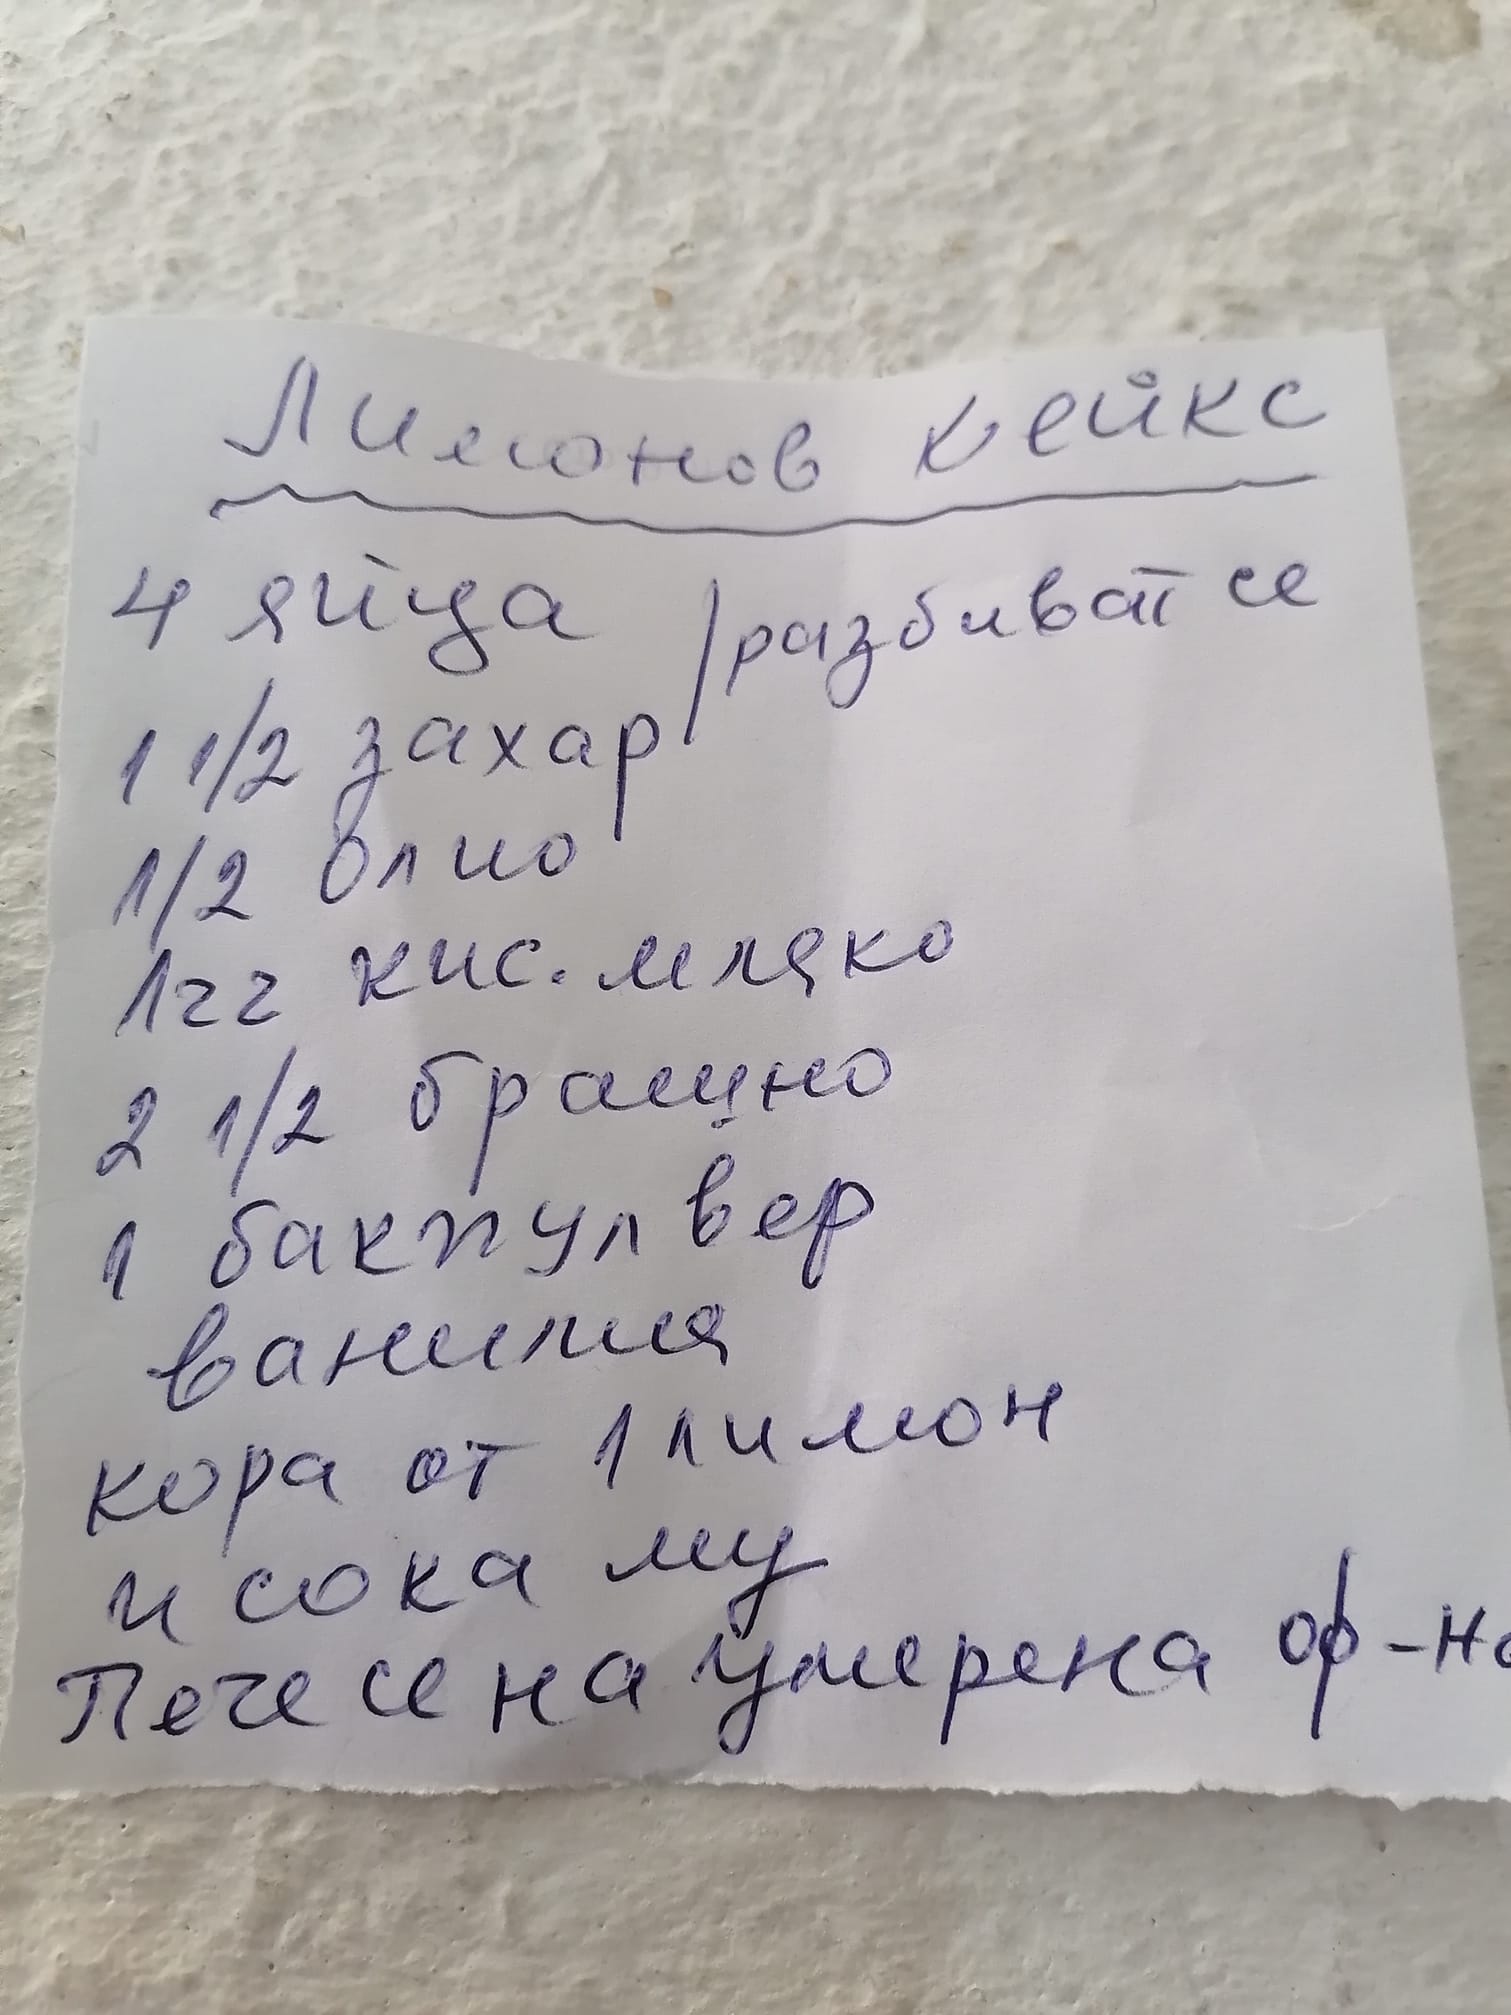 Лимонов кейкс
4 яйца / разбиват се
1 1/2 захар
1/2 олио
1 чг кис. мляко
2 1/2 брашно
1 бакпулвер
ванилия
кора от 1 лимон
и сока му
Пече се на умерена ф-на